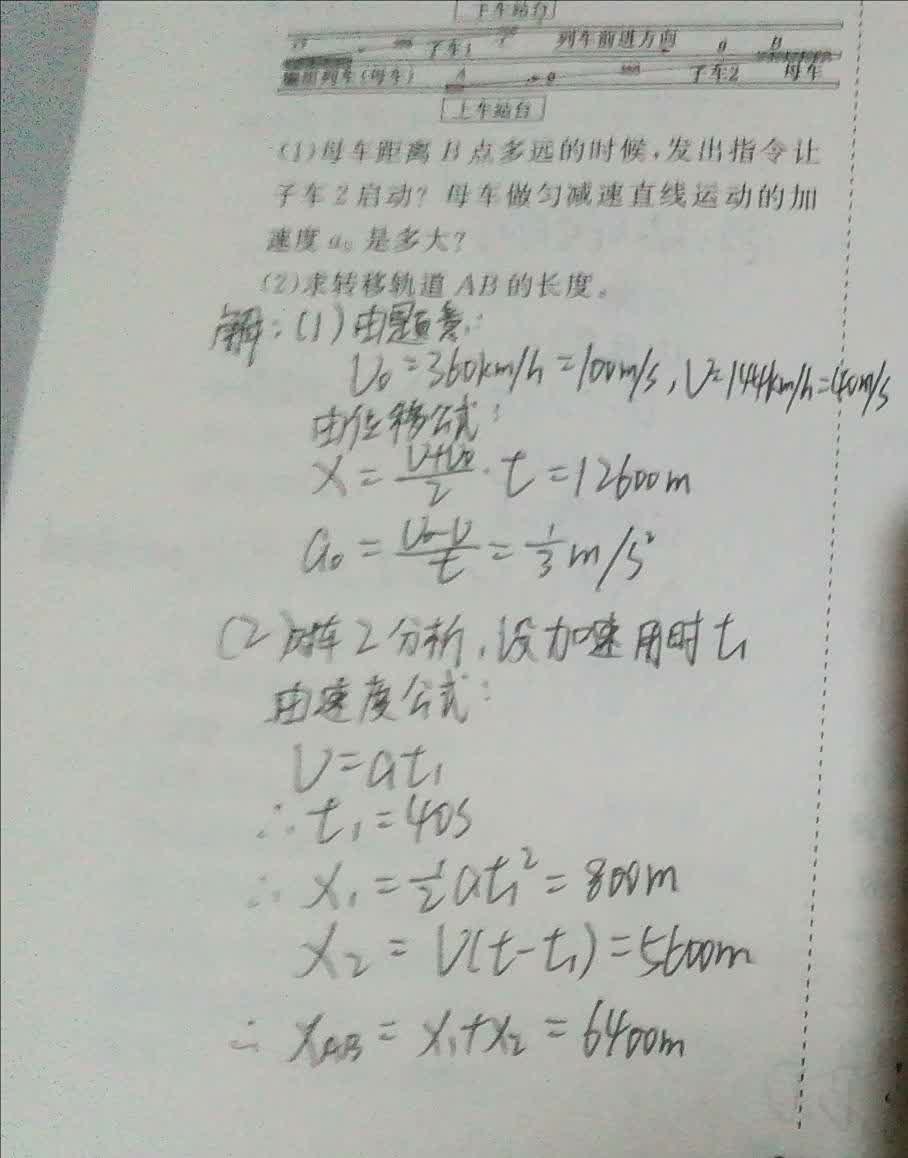 下车站台
子车1 列车前进方向 a B
编组列车(母车) A a 子车2 母车
上车站台
(1)母车距离B点多远的时候,发出指令让
子车2启动?母车做匀减速直线运动的加
速度a₀是多大?
(2)求转移轨道AB的长度。
解:(1)由题意:
V₀=360km/h=100m/s,V=144km/h=40m/s
由位移公式:
X=(V+V₀)/2·t=12600m
a₀=(V₀-V)/t=1/3m/s²
(2)对车2分析,设加速用时t₁
由速度公式:
V=at₁
∴t₁=40s
∴X₁=1/2at₁²=800m
X₂=V(t-t₁)=5600m
∴X_AB=X₁+X₂=6400m